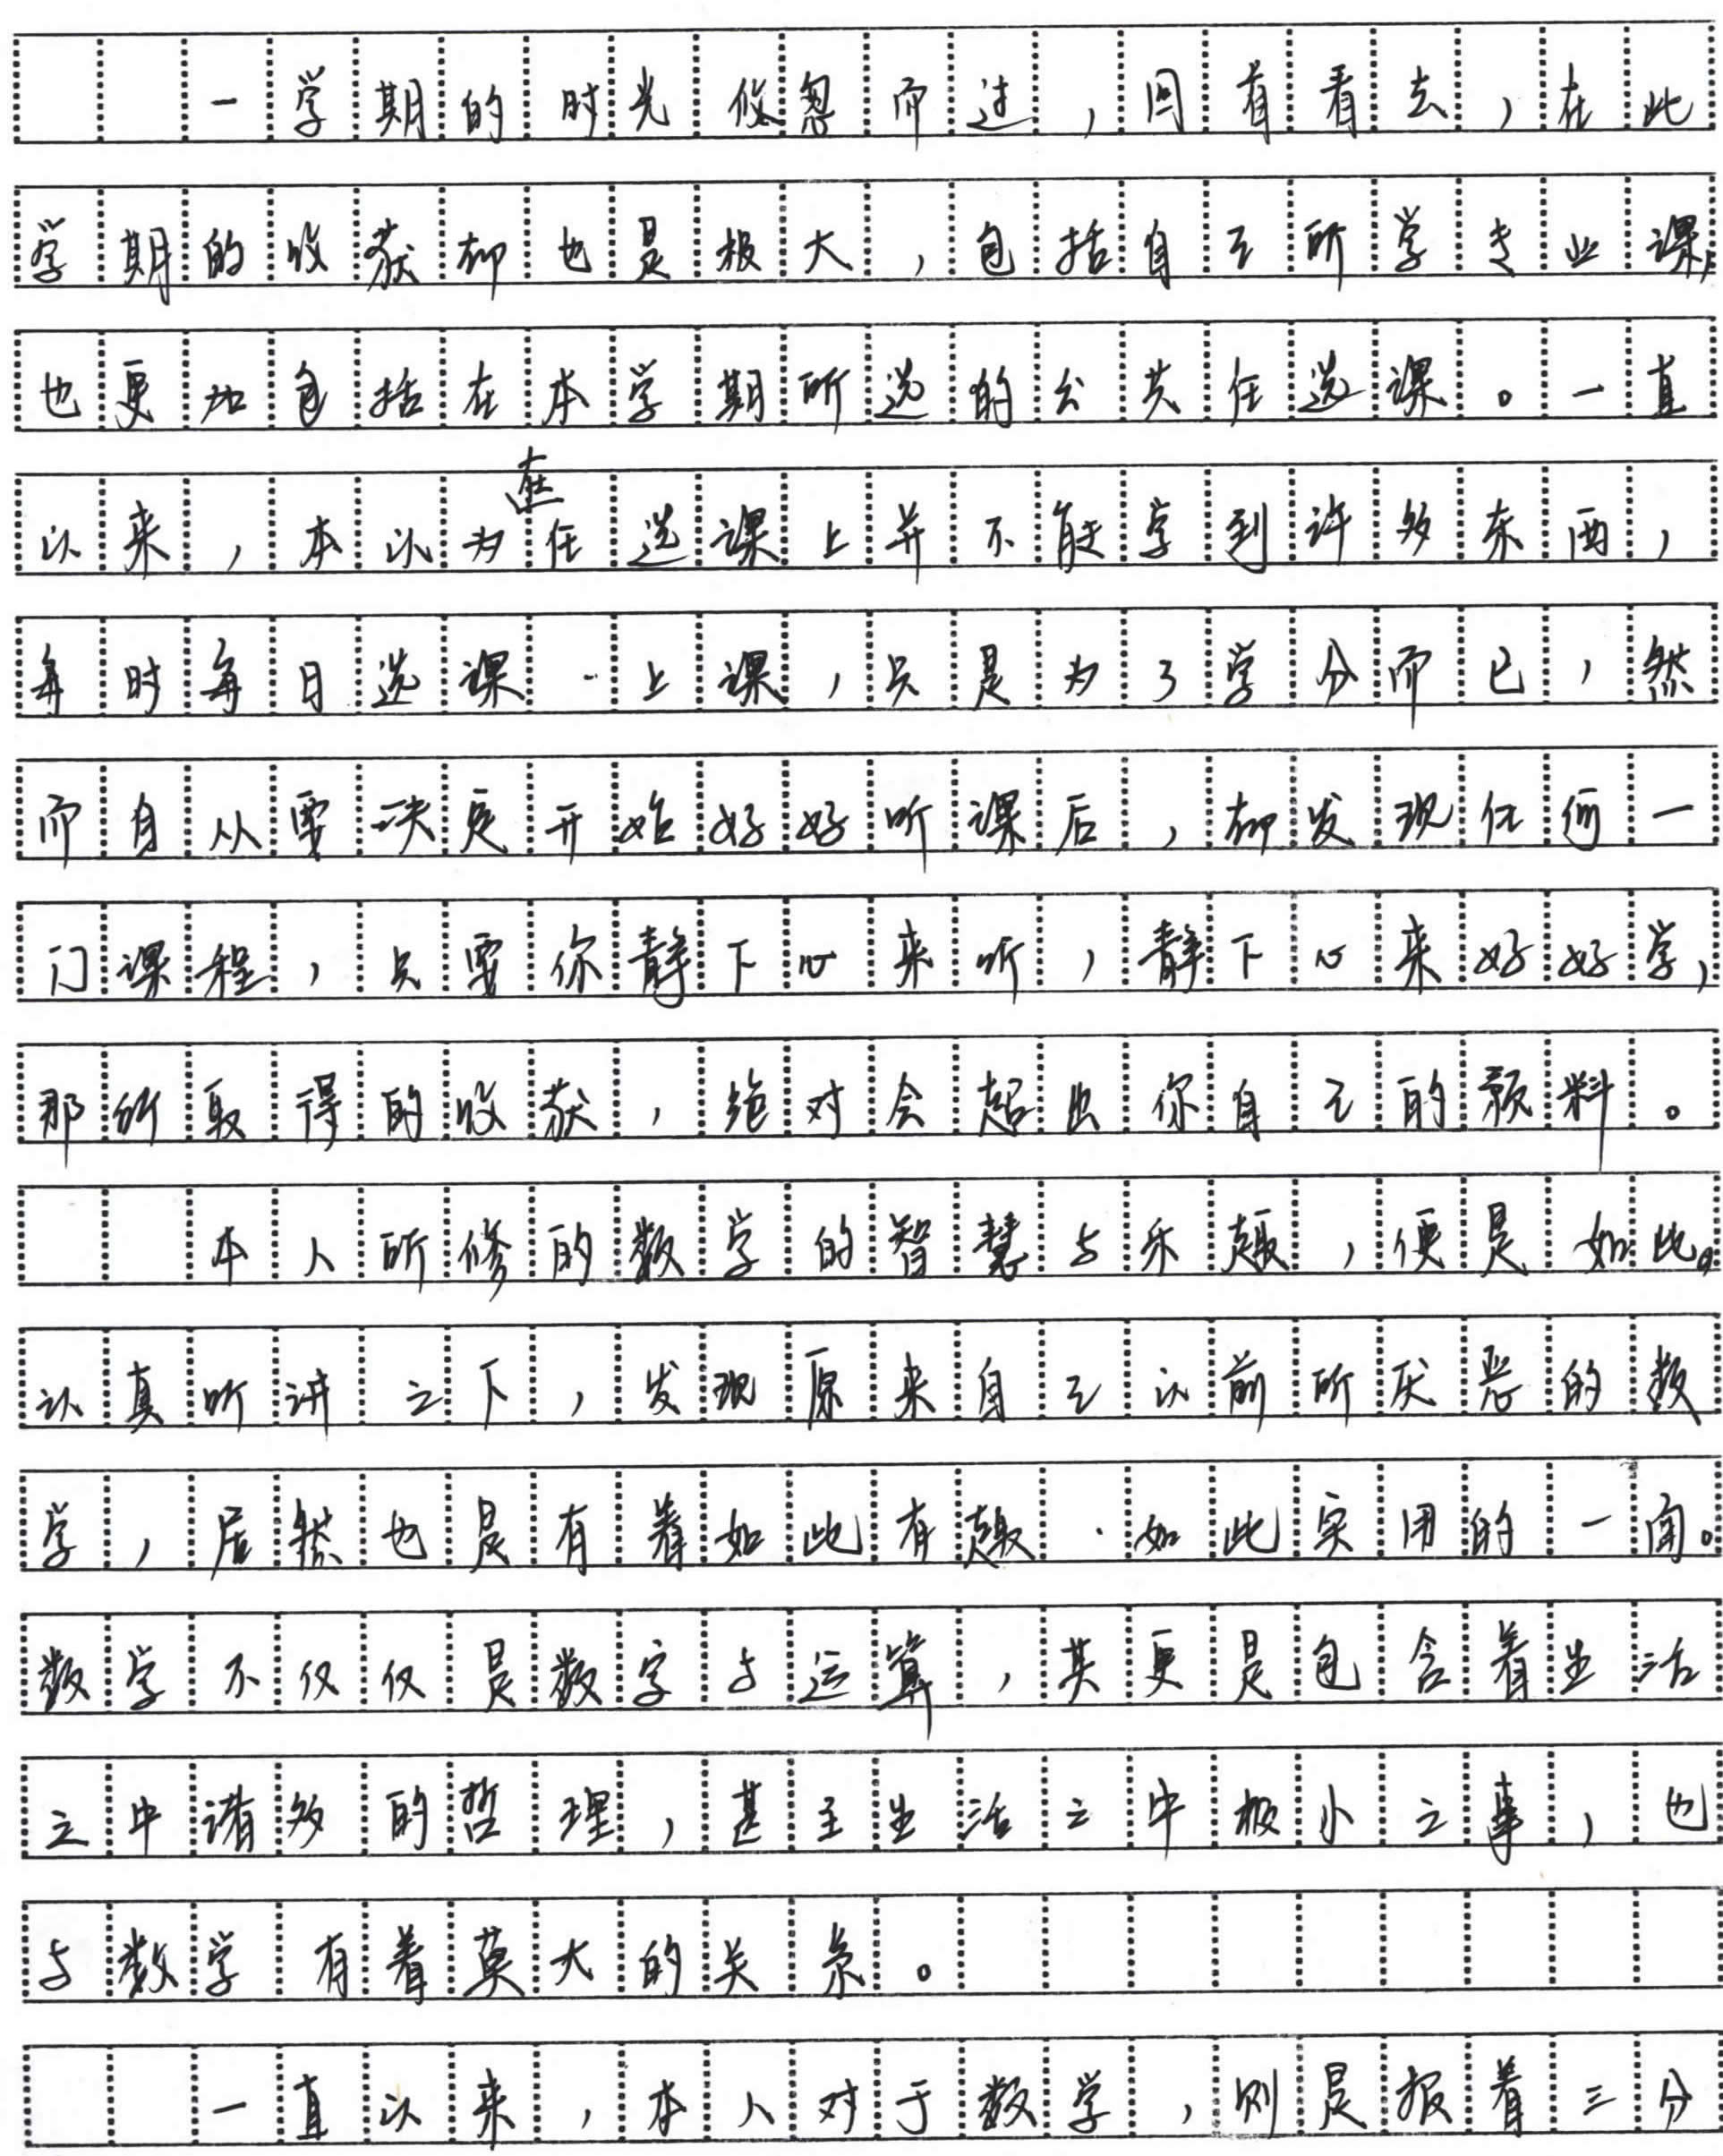 一学期的时光倏忽而过，回首看去，在此
学期的收获却也是极大，包括自己所学专业课，
也更加包括在本学期所选的公共任选课。一直
以来，本以为在任选课上并不能学到许多东西，
每时每日选课、上课，只是为了学分而已，然
而自从要决定开始好好听课后，却发现任何一
门课程，只要你静下心来听，静下心来好好学，
那所取得的收获，绝对会超出你自己的预料。
本人所修的数学的智慧与乐趣，便是如此。
认真听讲之下，发现原来自己以前所厌恶的数
学，居然也是有着如此有趣、如此实用的一面。
数学不仅仅是数字与运算，其更是包含着生活
之中诸多的哲理，甚至生活之中极小之事，也
与数学有着莫大的关系。
一直以来，本人对于数学，则是报着三分